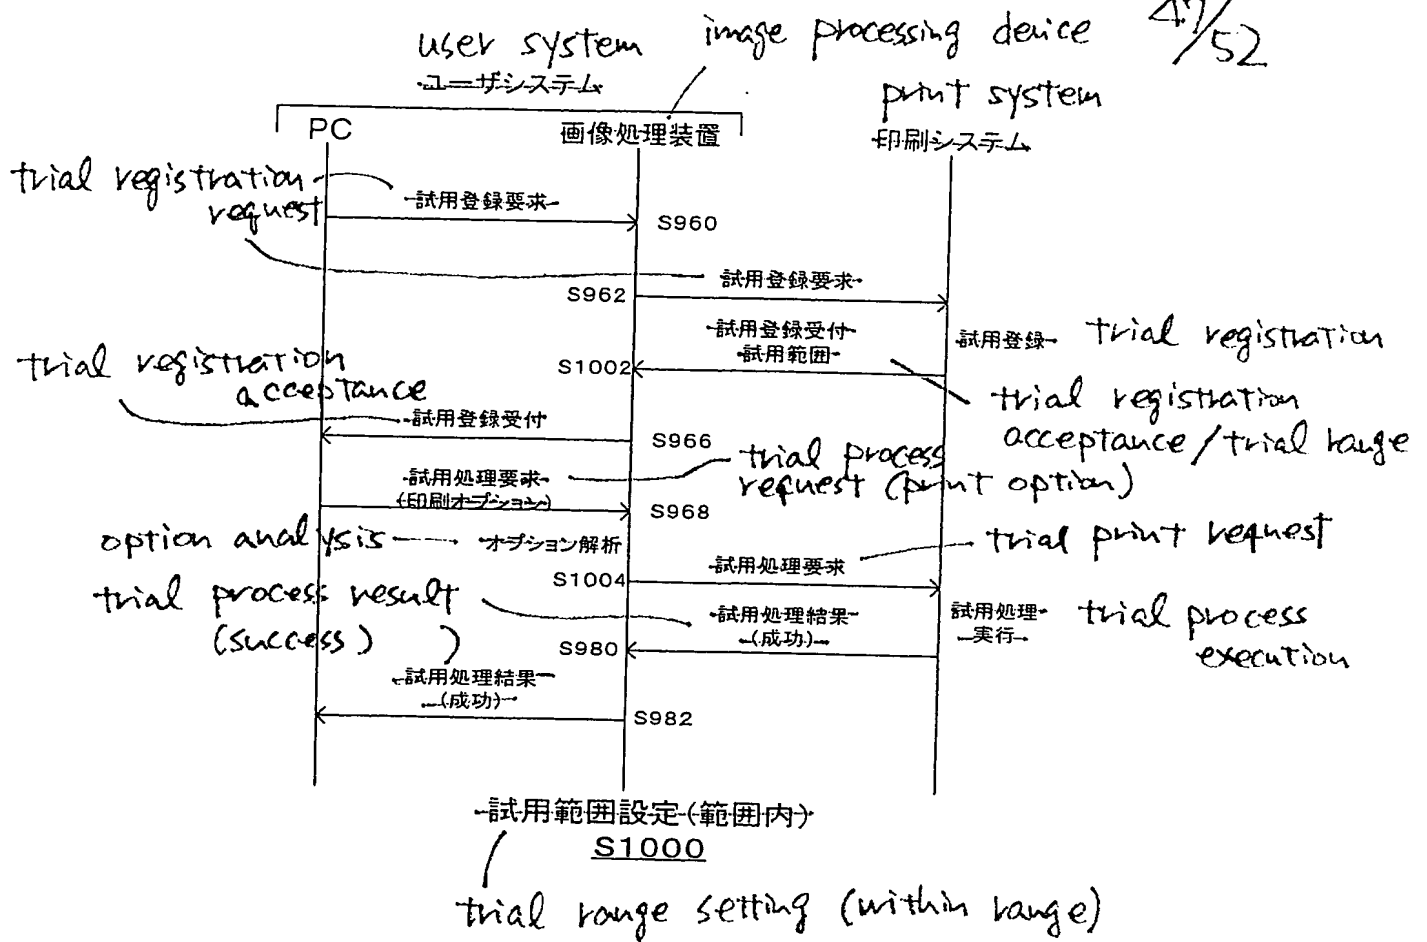 47/52
user system
image processing device
ユーザシステム
print system
PC
画像処理装置
印刷システム
trial registration
request
試用登録要求
S960
試用登録要求
S962
試用登録受付
試用範囲
試用登録
trial registration
S1002
trial registration
acceptance
trial registration
acceptance/trial range
試用登録受付
S966
試用処理要求
(印刷オプション)
trial process
request (print option)
S968
option analysis
オプション解析
trial print request
試用処理要求
S1004
trial process result
(success)
試用処理結果
(成功)
試用処理
実行
trial process
execution
S980
試用処理結果
(成功)
S982
試用範囲設定(範囲内)
S1000
trial range setting (within range)